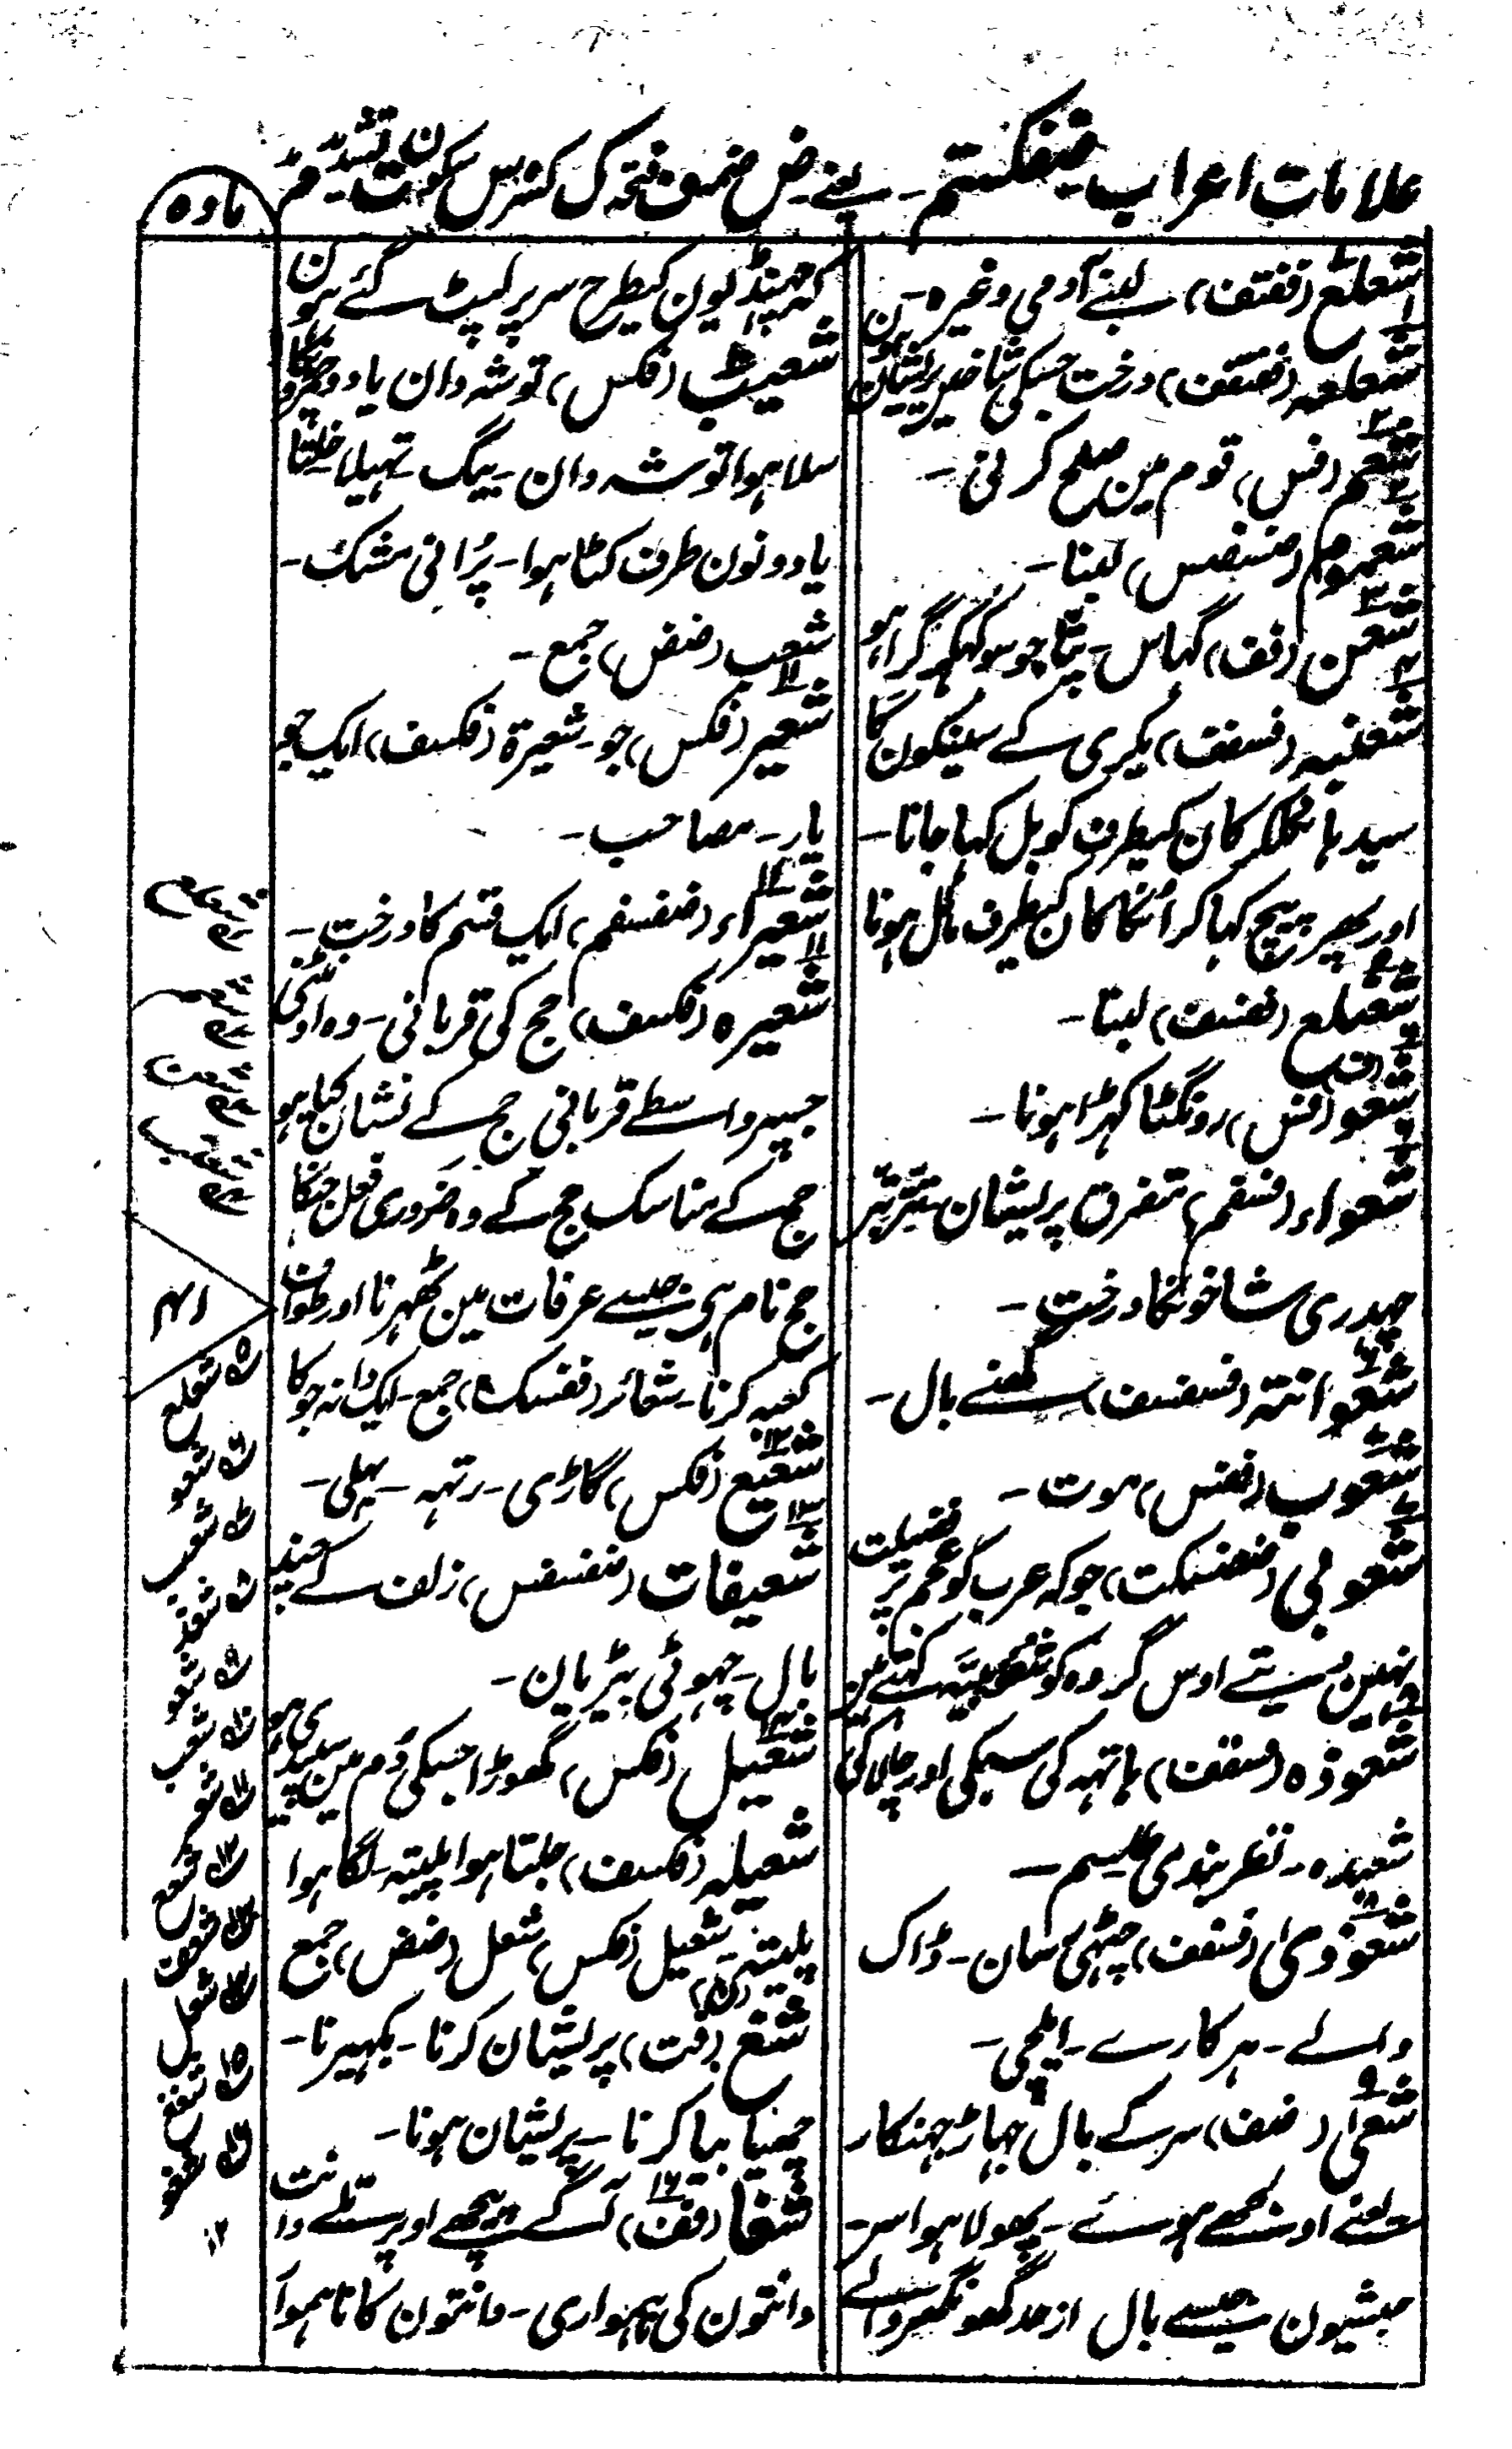 علامات اعراب ضفکستم ۔ یعنے ض ضمہ ف فتحہ ک کسرہ س سکون ت تشدید م مد
مادہ
شعلع (ففتف) لمبے آدمی وغیرہ۔
شعلعہ (ففتفف) درخت جسکی شاخین پریشان ہون
شعم (فس) قوم مین صلح کرانی۔
شعموم (ضسضس) لمبا۔
شعن (فف) گہاس۔ پتا جو سوکھکر گرا ہو
شعنبہ (فسفف) بکری کے سینگون کا
سیدہا نکلکر کان کیطرف کو بل کہا جانا۔
اور پھر پیچ کہا کر انکا کان کیطرف مائل ہونا
شعنلع (ففسف) لمبا۔
شعو (فس) رونگٹا کہڑا ہونا۔
شعواء (فسفم) متفرق پریشان تتر بتر
چہدری شاخونکا درخت۔
شعوانتہ (فسفسف) گھنے بال۔
شعوب (فضس) موت۔
شعوبی (ضضسکت) جو کہ عرب کو عجم پر فضیلت
نہین دیتے اوس گروہ کو شعوبیہ کہتے ہین
شعوذہ (فسفف) ہاتہہ کی سبکی اور چالاکی
شعبدہ۔ نظر بندی طلسم۔
شعوذی (فسفف) چٹھی رسان۔ ڈاک
والے۔ ہرکارے۔ ایلچی۔
شعی (ضف) سر کے بال جہاڑ جہنکار
اولجھے ہوئے۔ پھولا ہوا سر۔
حبشیون جیسے بال از حد گھونگھر والے
کہ جہنڈیون کیطرح سر پر لپٹ گئے ہون
شعیب (فکس) توشہ دان یا دو چمڑونکا
سلا ہوا توشہ دان۔ بیگ۔ تہیلا خلیتا
یا دونون طرف کٹا ہوا۔ پرانی مشک۔
شعب (ضض) جمع۔
شعیر (فکس) جو۔ شعیرۃ (فکسف) ایک جو
یار۔ مصاحب۔
شعیراء (ضفسفم) ایک قسم کا درخت۔
شعیرہ (فکسف) حج کی قربانی۔ وہ اونٹنی
جسپر واسطے قربانی حج کے نشان کیا ہو
حج کے مناسک حج کے وہ ضروری فعل جنکا
حج نام ہی جیسے عرفات مین ٹھہرنا اور طواف
کعبہ کرنا۔ شعائر (ففسک) جمع۔ ایک دانہ جو کا
شعیع (فکس) گاڑی۔ رتہہ۔ بہلی۔
شعیفات (ضفسفس) زلف کے چند
بال۔ چہوٹی بیڑیان۔
شعیل (فکس) گھوڑا جسکی دم مین سپیدی ہو
شعیلہ (فکسف) جلتا ہوا پلیتہ۔ لگا ہوا
پلیتہ۔ شعیل (فکس) شعل (ضض) جمع
شغ (فت) پریشان کرنا۔ بکہیرنا۔
پریشان ہونا۔
شغا (فف) آگے پیچھے اوپر تلے دانت
دانتون کی ناہمواری۔ دانتون کا ناہموا
شعم
شعن
شعب
۱م
۵ شعلع
شعو
شعب
شعوذ
شعو
شعب
شعر
شعع
شعف
شعل
۱۵ شغغ
شغو
۱۲